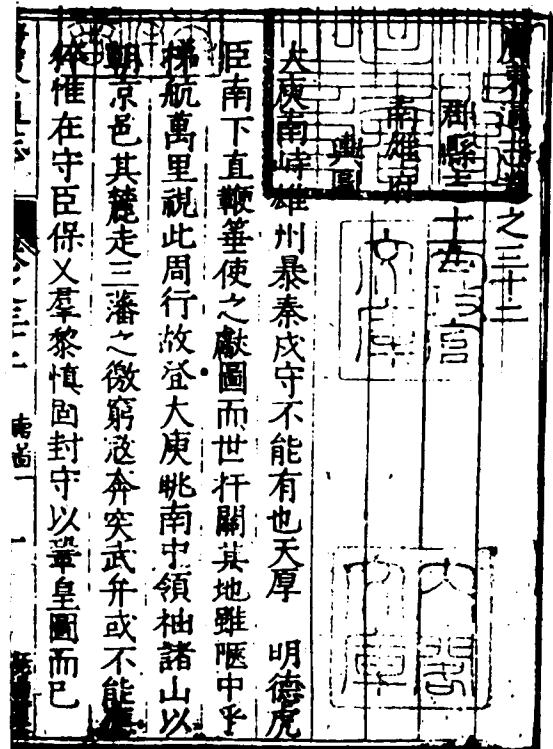 廣東通志卷之三十二
郡縣志十
南雄府
輿圖
大庾南峙雄州暴秦戍守不能有也天厚　明德虎
臣南下直鞭箠使之獻圖而世扞關其地雖陋中乎
梯航萬里視此周行故登大庾眺南中領袖諸山以
朝京邑其麓走三藩之徼窮寇奔突武弁或不能
惟在守臣保乂羣黎慎固封守以鞏皇圖而已